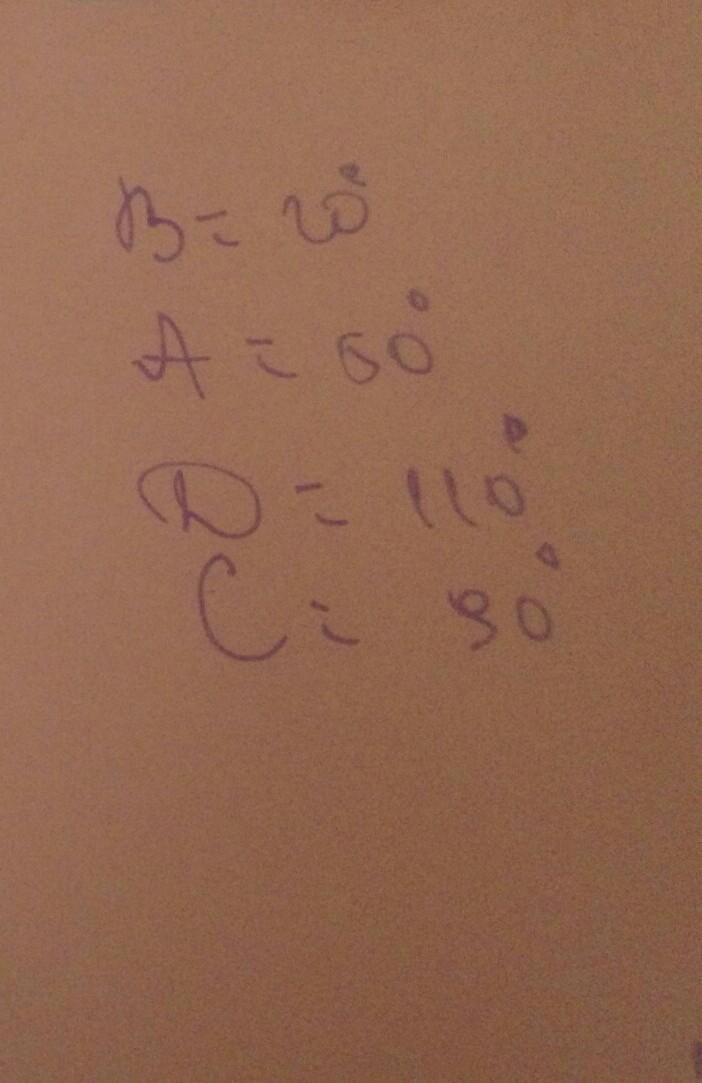 B = 20°
A = 60°
D = 110°
C = 90°